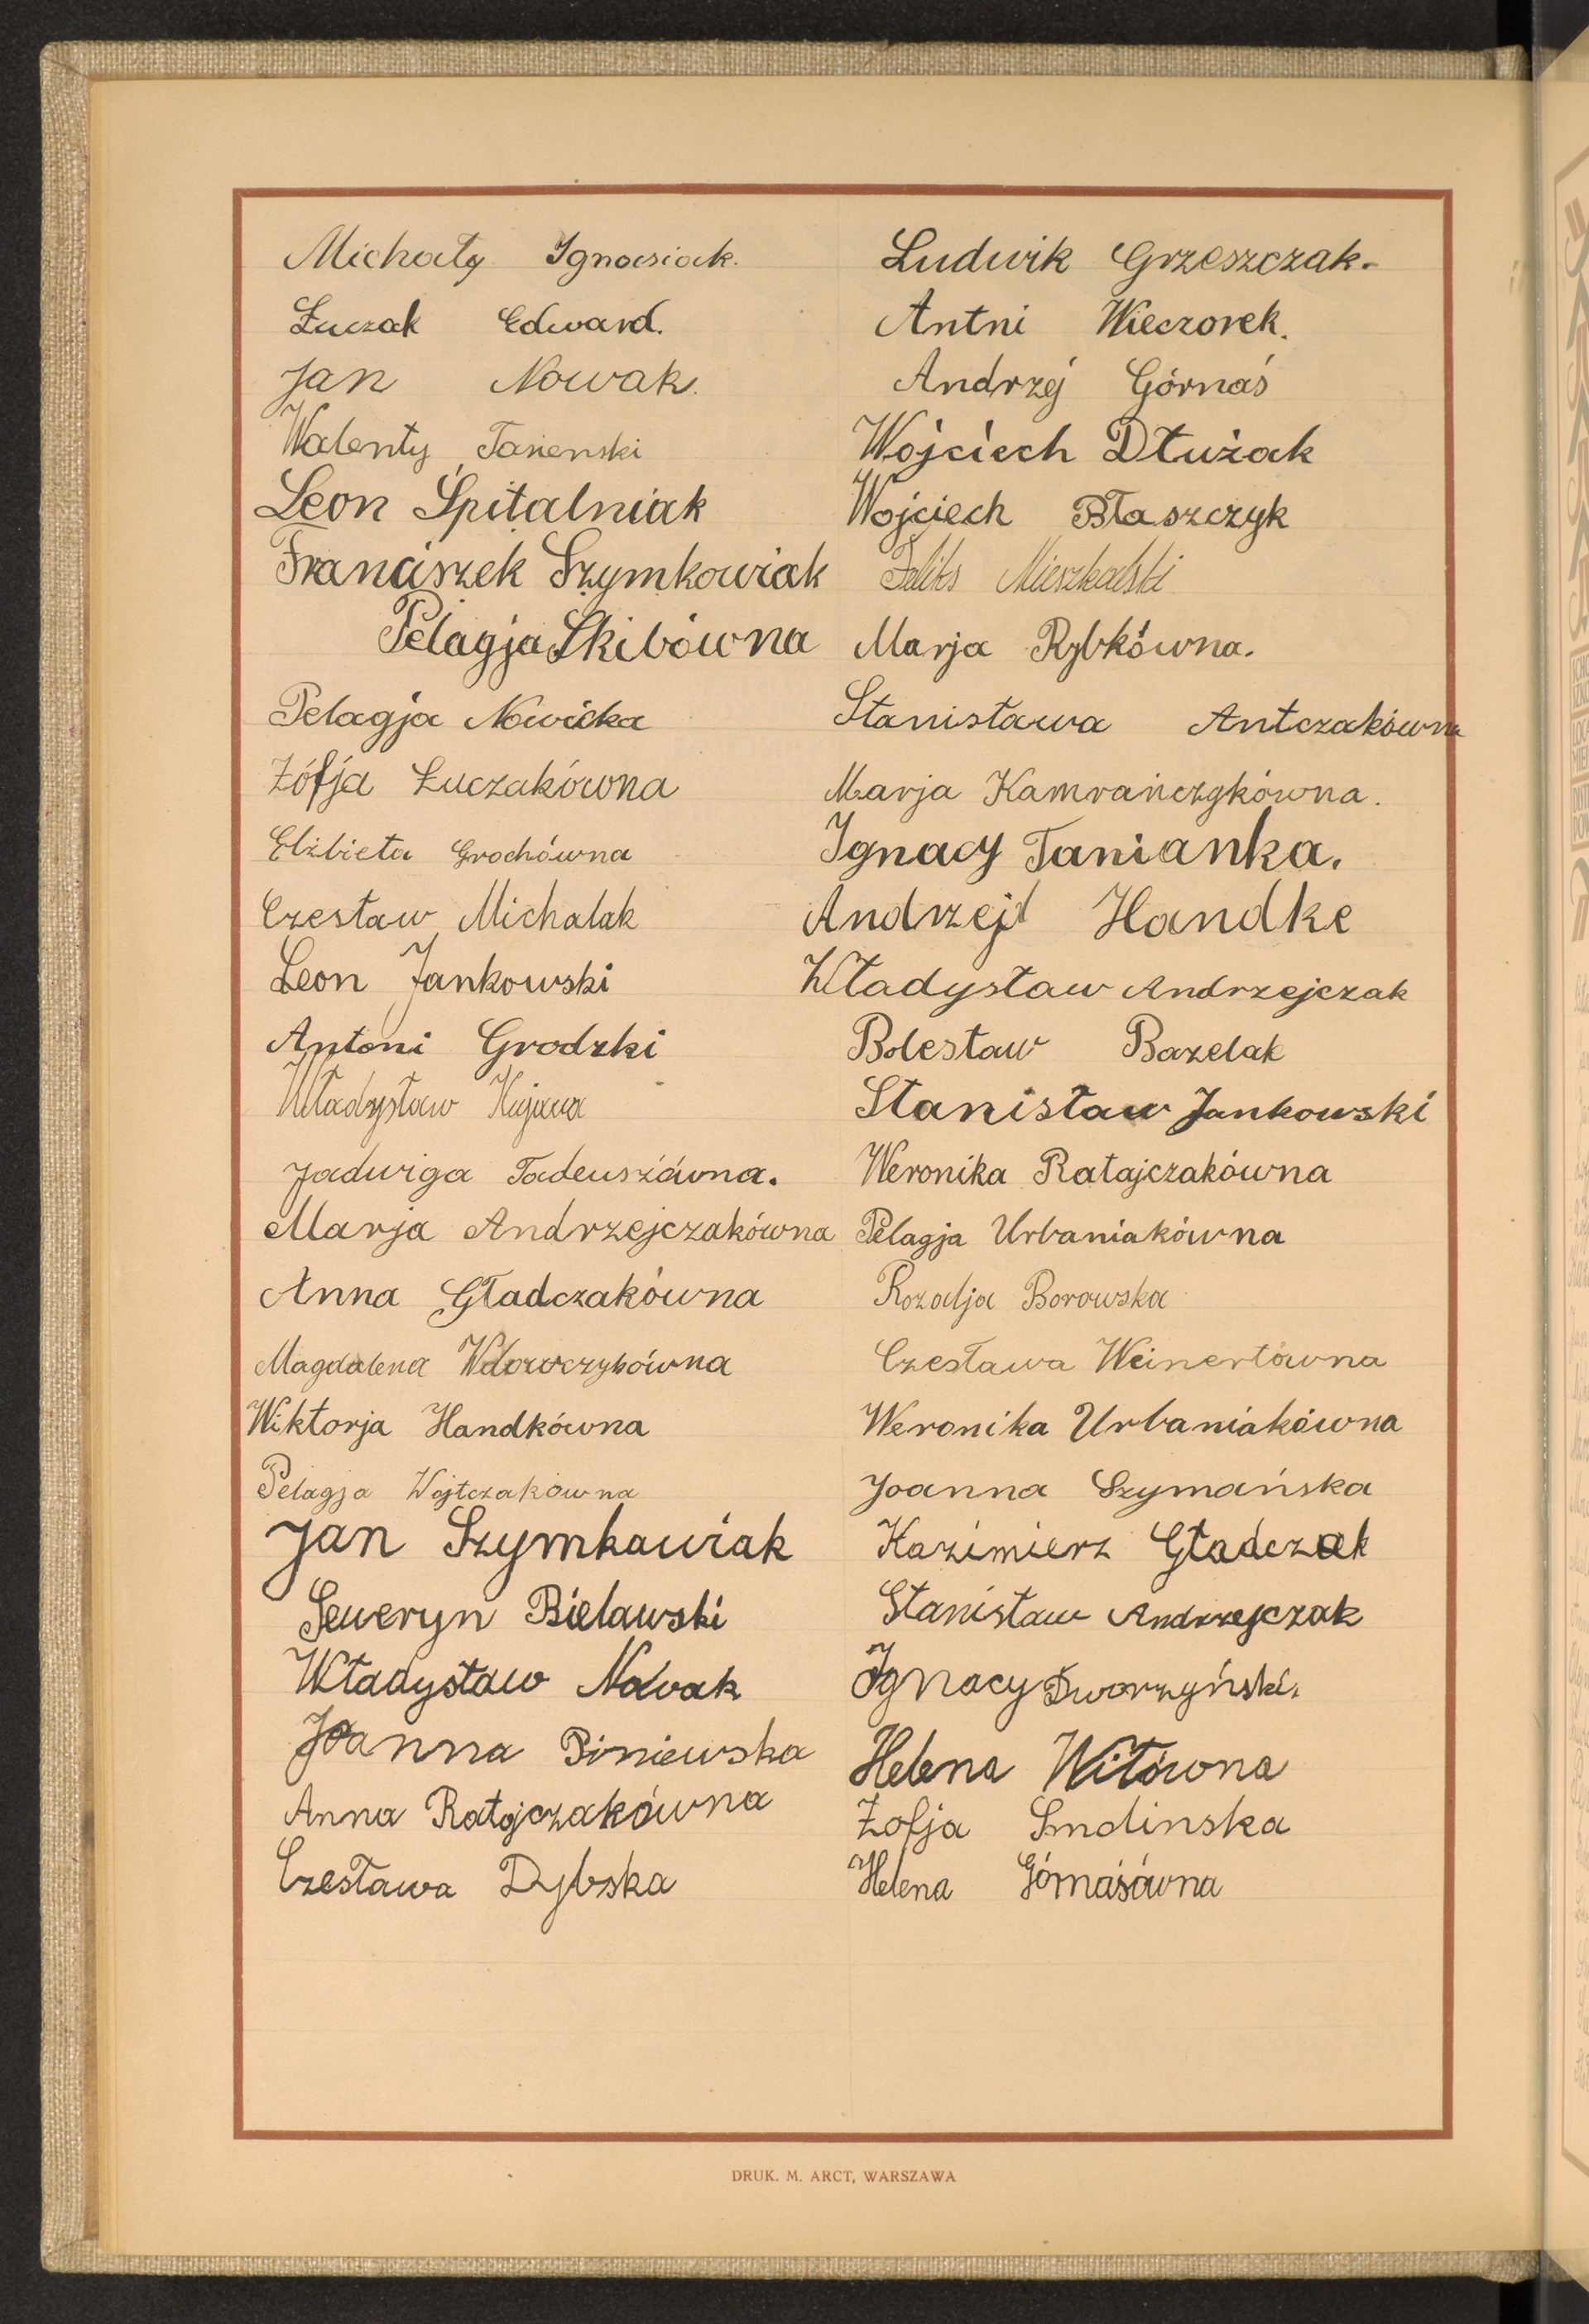 Michały Ignasiak.
Łuczak Edward.
Jan Nowak.
Walenty Tanenski
Leon Śpitalniak
Franciszek Szymkowiak
Pelagja Skibówna
Pelagja Nowicka
Zófja Łuczakówna
Elżbieta Grochówna
Czesław Michalak
Leon Jankowski
Antoni Grodzki
Władysław Kujawa
Jadwiga Tadeuszówna.
Marja Andrzejczakówna
Anna Gładczakówna
Magdalena Wdowczykówna
Wiktorja Handkówna
Pelagja Wojtczakówna
Jan Szymkawiak
Seweryn Bielawski
Władysław Nowak
Joanna Biniewska
Anna Ratajczakówna
Czesława Dybska
Ludwik Grzeszczak.
Antni Wieczorek.
Andrzéj Górnaś
Wojciech Dłużak
Wojciech Błaszczyk
Feliks Mieszkalski
Marja Rybkówna.
Stanisława Antczakówna
Marja Kamrańczykówna.
Ignacy Tanianka.
Andrzej Handke
Władysław Andrzejczak
Bolesław Bazelak
Stanisław Jankowski
Weronika Ratajczakówna
Pelagja Urbaniakówna
Rozalja Borowska
Czesława Weinertówna
Weronika Urbaniakówna
Joanna Szymańska
Kazimierz Gładczak
Stanisław Andrzejczak
Ignacy Dworzyński.
Helena Witówna
Zofja Smolinska
Helena Górnaśówna
DRUK. M. ARCT, WARSZAWA